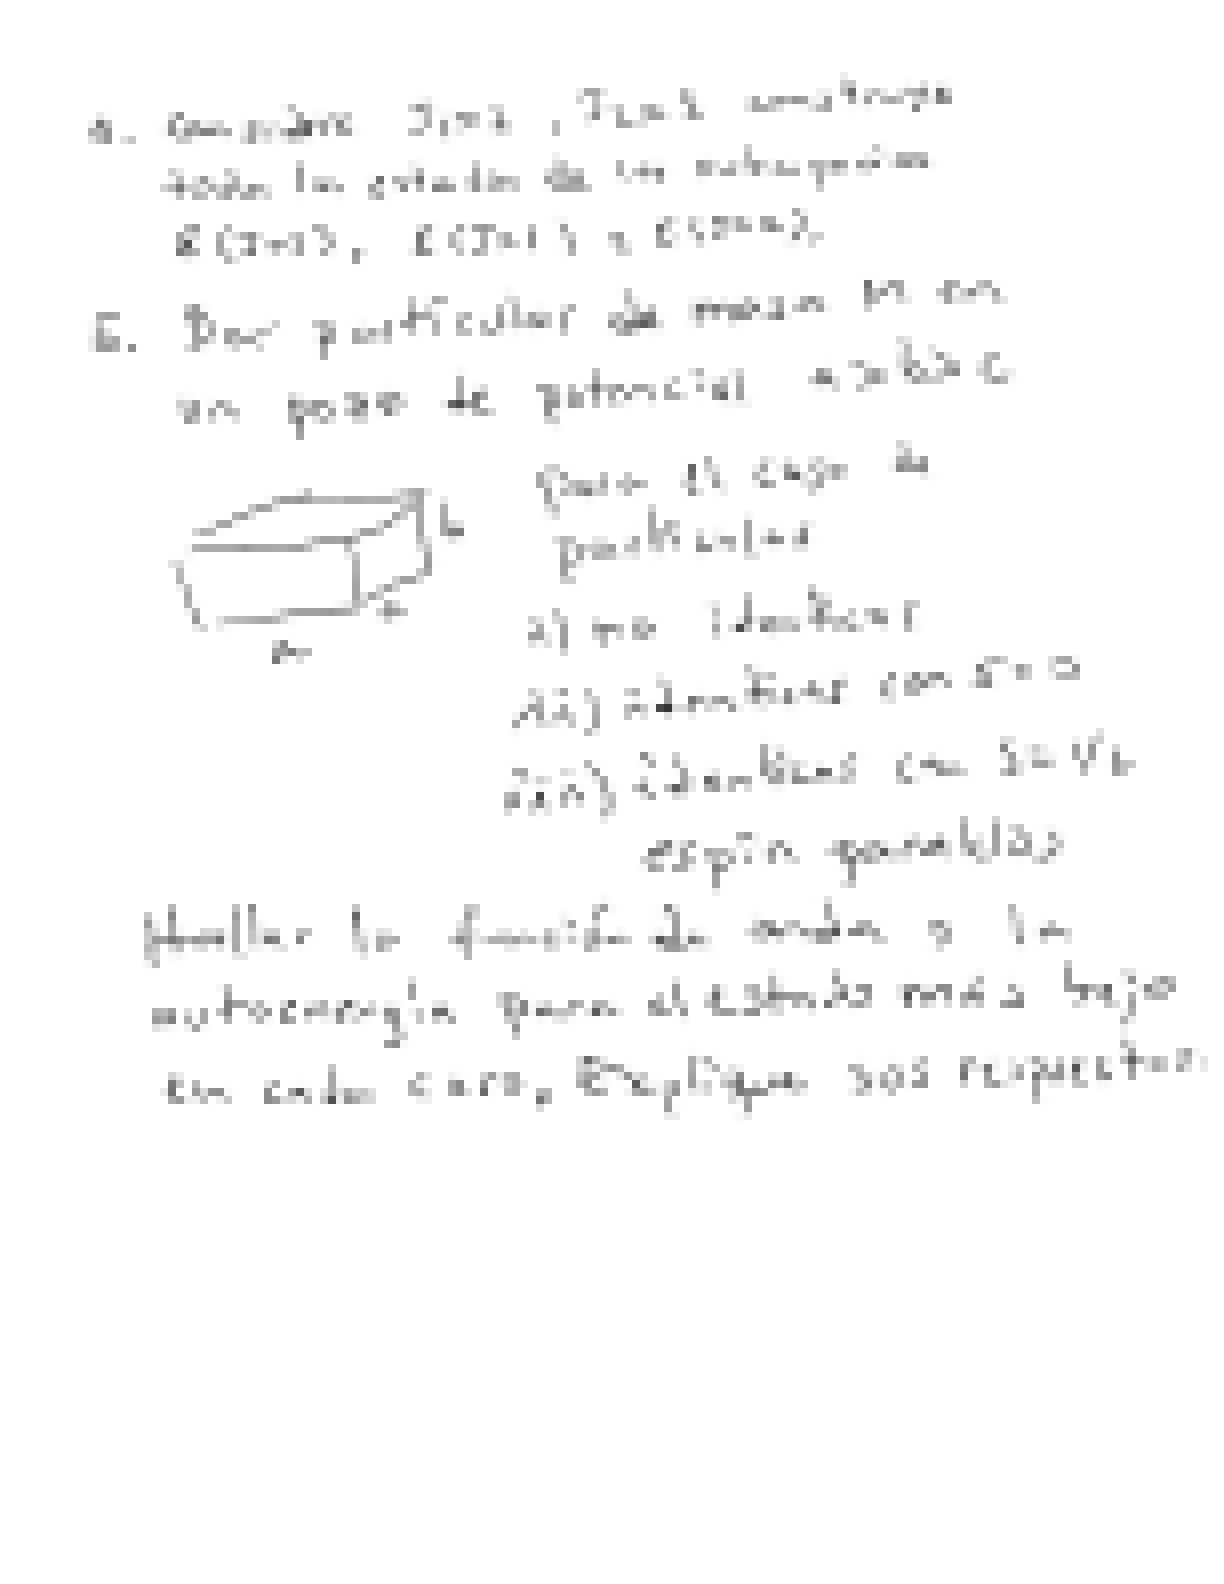 Considere J1 = , J2 = construya
todos los estados de los subespacios
E(J=2), E(J=1) y E(J=0).
5. Dos particulas de masa M en
un pozo de potencial a>b>c
para el caso de
particulas
b
c
a
i) no identicas
ii) identicas con S=0
iii) identicas con S=1/2
espin paralelos
Hallar la función de onda y la
autoenergia para el estado más bajo
en cada caso, Explique sus respuestas.